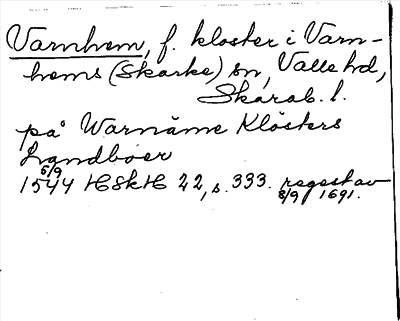 Varnhem, f. kloster i Varn-
hems (Skarke) sn, Valle hd,
Skarab. l.
på Warnåme Klösters
Landboer
5/9
1544 HSkH 22, s. 333. regest av
8/9 1691.